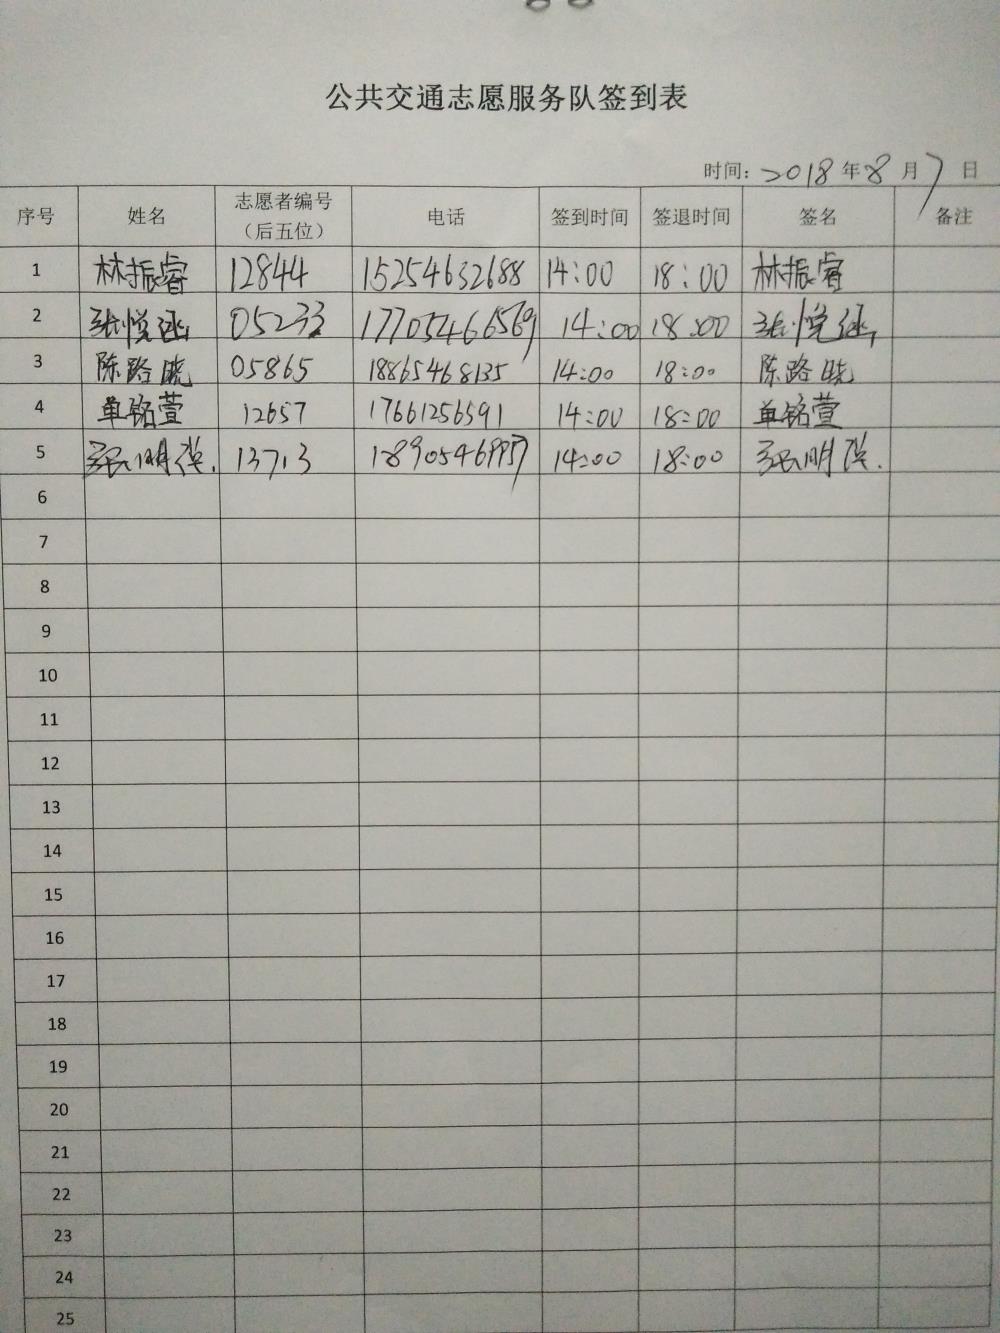 公共交通志愿服务队签到表
时间：2018年8月7日
序号 姓名 志愿者编号（后五位） 电话 签到时间 签退时间 签名 备注
1 林振睿 12844 15254632688 14:00 18:00 林振睿
2 张悦涵 05233 17705466569 14:00 18:00 张悦涵
3 陈路晓 05865 18865468135 14:00 18:00 陈路晓
4 单铭萱 12657 17661256591 14:00 18:00 单铭萱
5 张明 13713 14:00 18:00 张明
6
7
8
9
10
11
12
13
14
15
16
17
18
19
20
21
22
23
24
25